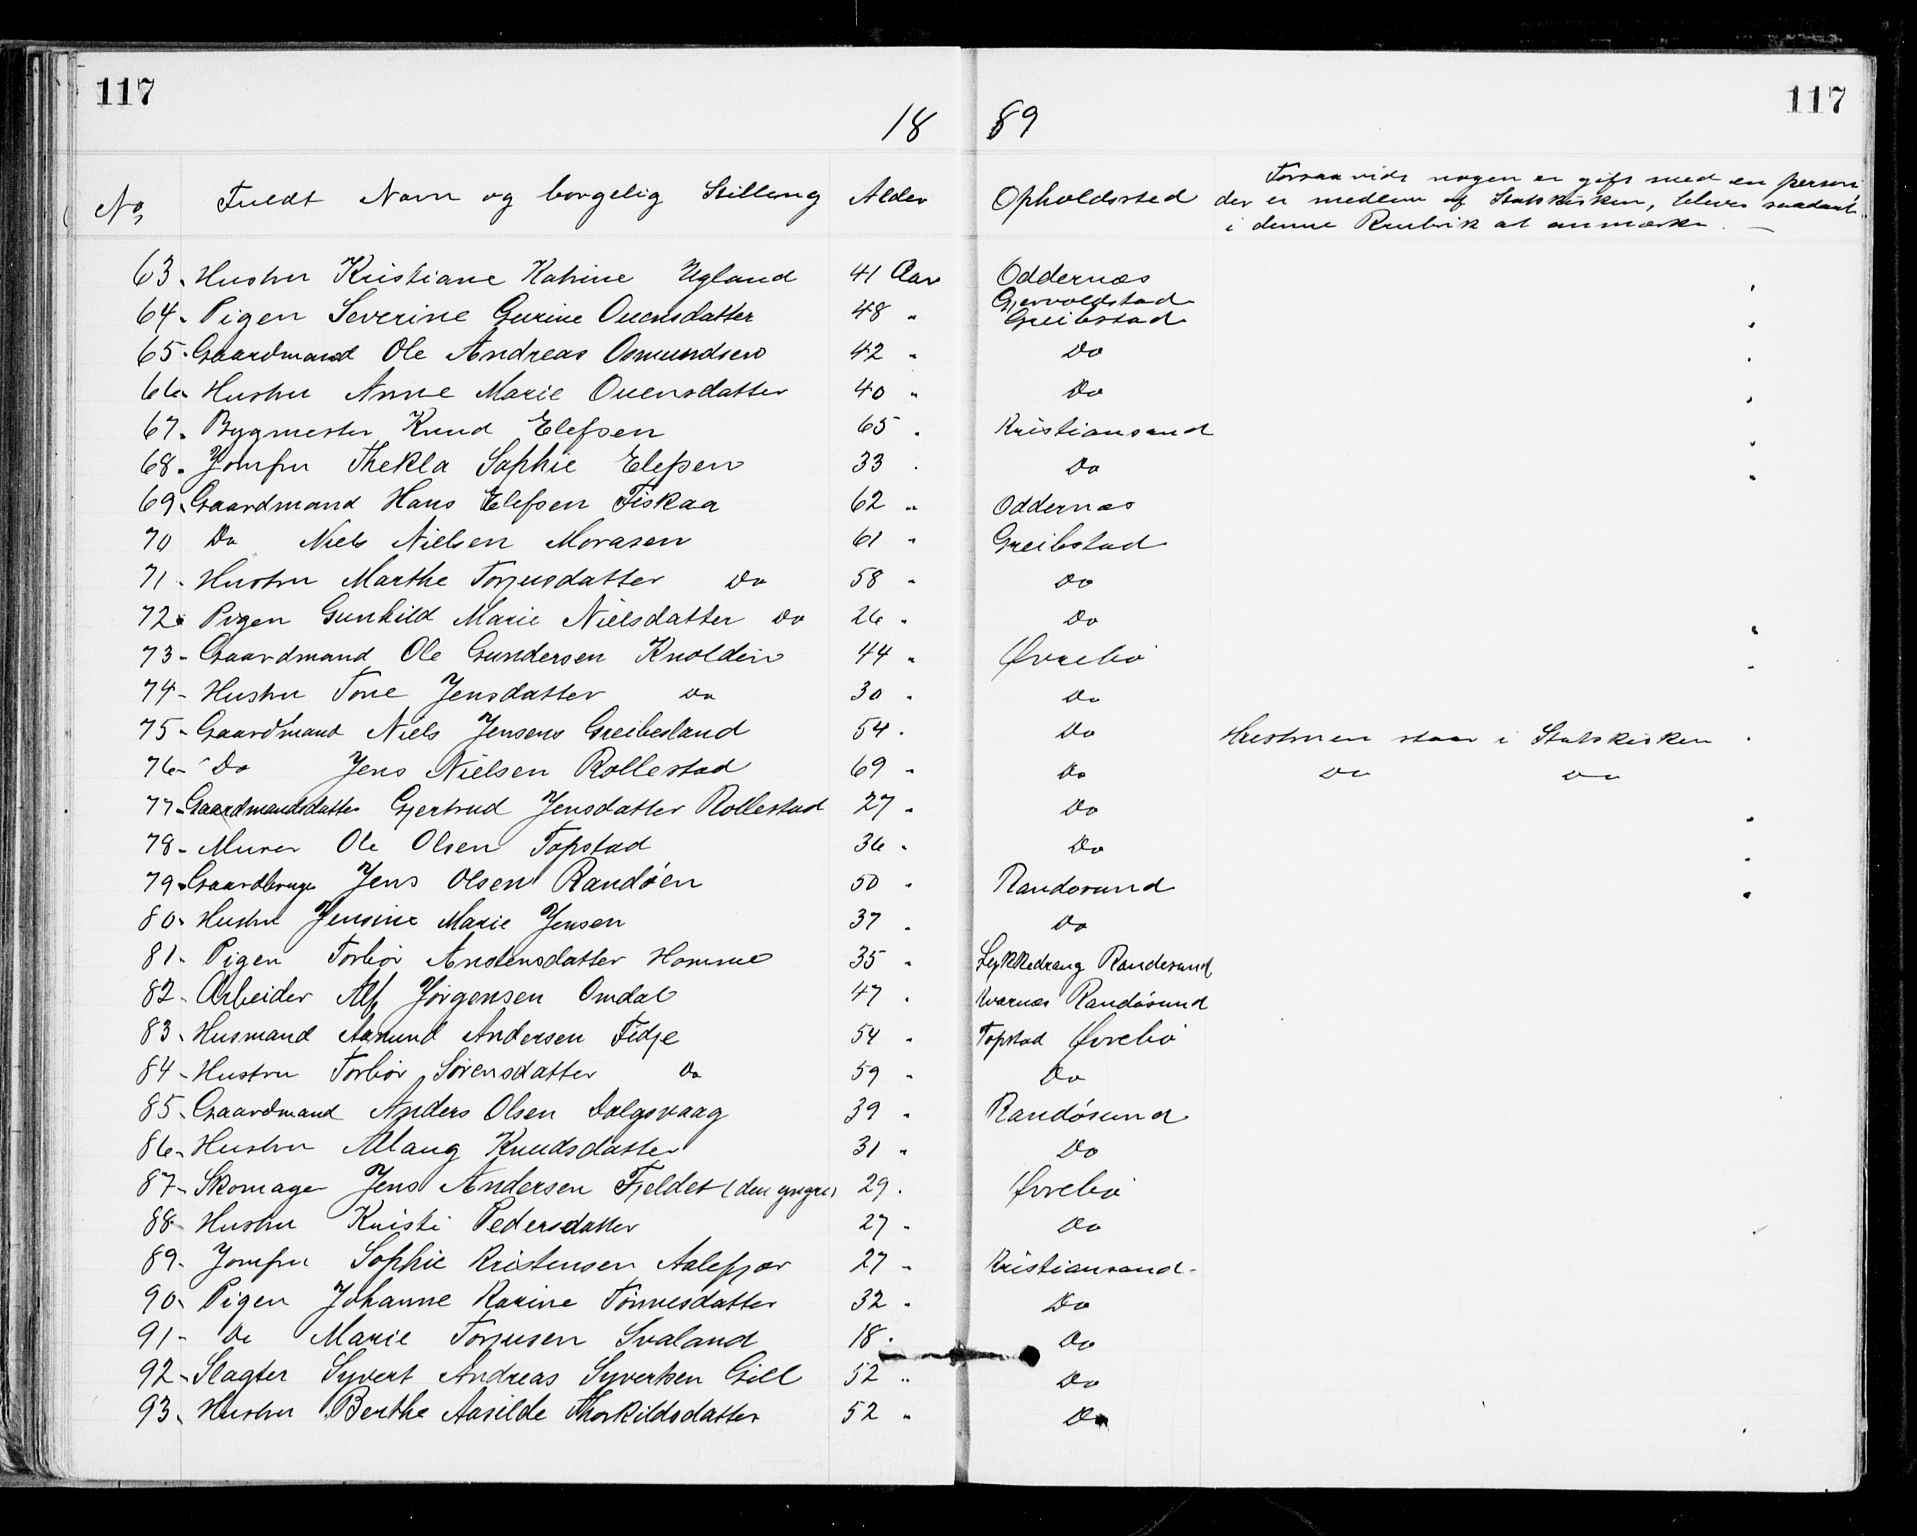 117 117
18 89
No, Fuldt Navn og borgelig Stilling Alder Opholdssted Forsaavidt nogen er gift med en person
der er medlem af Statskirken, bliver saadant
i denne Rubrik at anmærke. —
63. Hustru Kristiane Katrine Ugland 41 Aar Oddernæs
64. Pigen Severine Gurine Ouensdatter 48 " Gjervoldstad Greibstad
65. Gaardmand Ole Andreas Osmundsen 42 " Do
66. Hustru Anne Marie Ouensdatter 40 " Do
67. Bygmester Knud Elefsen 65 . Kristiansand
68. Jomfru Thekla Sophie Elefsen 33 . Do
69. Gaardmand Hans Elefsen Fiskaa 62 " Oddernæs
70 Do Niels Nielsen Morasen 61 " Greibstad
71 - Hustru Marthe Torjusdatter Do 58 " Do
72. Pigen Gunhild Marie Nielsdatter Do 26 " Do
73 - Gaardmand Ole Gundersen Knolden 44 " Øvrebø
74 - Hustru Tone Jensdatter Do 30 . Do
75 - Gaardmand Niels Jensens Greibesland 54 . Do Hustruen staar i Statskirken .
76 - Do Jens Nielsen Rollestad 69 " Do Do Do
77 - Gaardmandsdatter Gjertrud Jensdatter Rollestad 27 . Do
78 - Murer Ole Olsen Topstad 36 . Do
79 - Gaardbruger Jens Olsen Randøen 50 " Randøsund
80. Hustru Jensine Marie Jensen 37 . Do
81 - Pigen Torbør Anstensdatter Homme 35 " Randesund
82 - Arbeider Alf Jørgensen Omdal 47 . Kvarnæs Randøsund
83. Husmand Aanund Andersen Fidje 54 " Topstad Øvrebø
84 - Hustru Torbør Sørensdatter Do 59 " Do
85. Gaardmand Anders Olsen Dalgsvaag 39 " Randøsund
86. Hustru Allaug Knudsdatter 31 " Do
87 - Skomager Jens Andersen Fjeldet (den yngre) 29 . Øvrebø
88 - Hustru Kristi Pedersdatter 27 - Do
89 - Jomfru Sophie Kristensen Aalefjær 27 " Kristiansand -
90. Pigen Johanne Karine Tønnesdatter 32 " Do
91 - Do Marie Torjusen Svaland 18 . Do
92 - Slagter Syvert Andreas Syvertsen Gill 52 " Do
93. Hustru Berthe Aasilde Thorkildsdatter 52 " Do